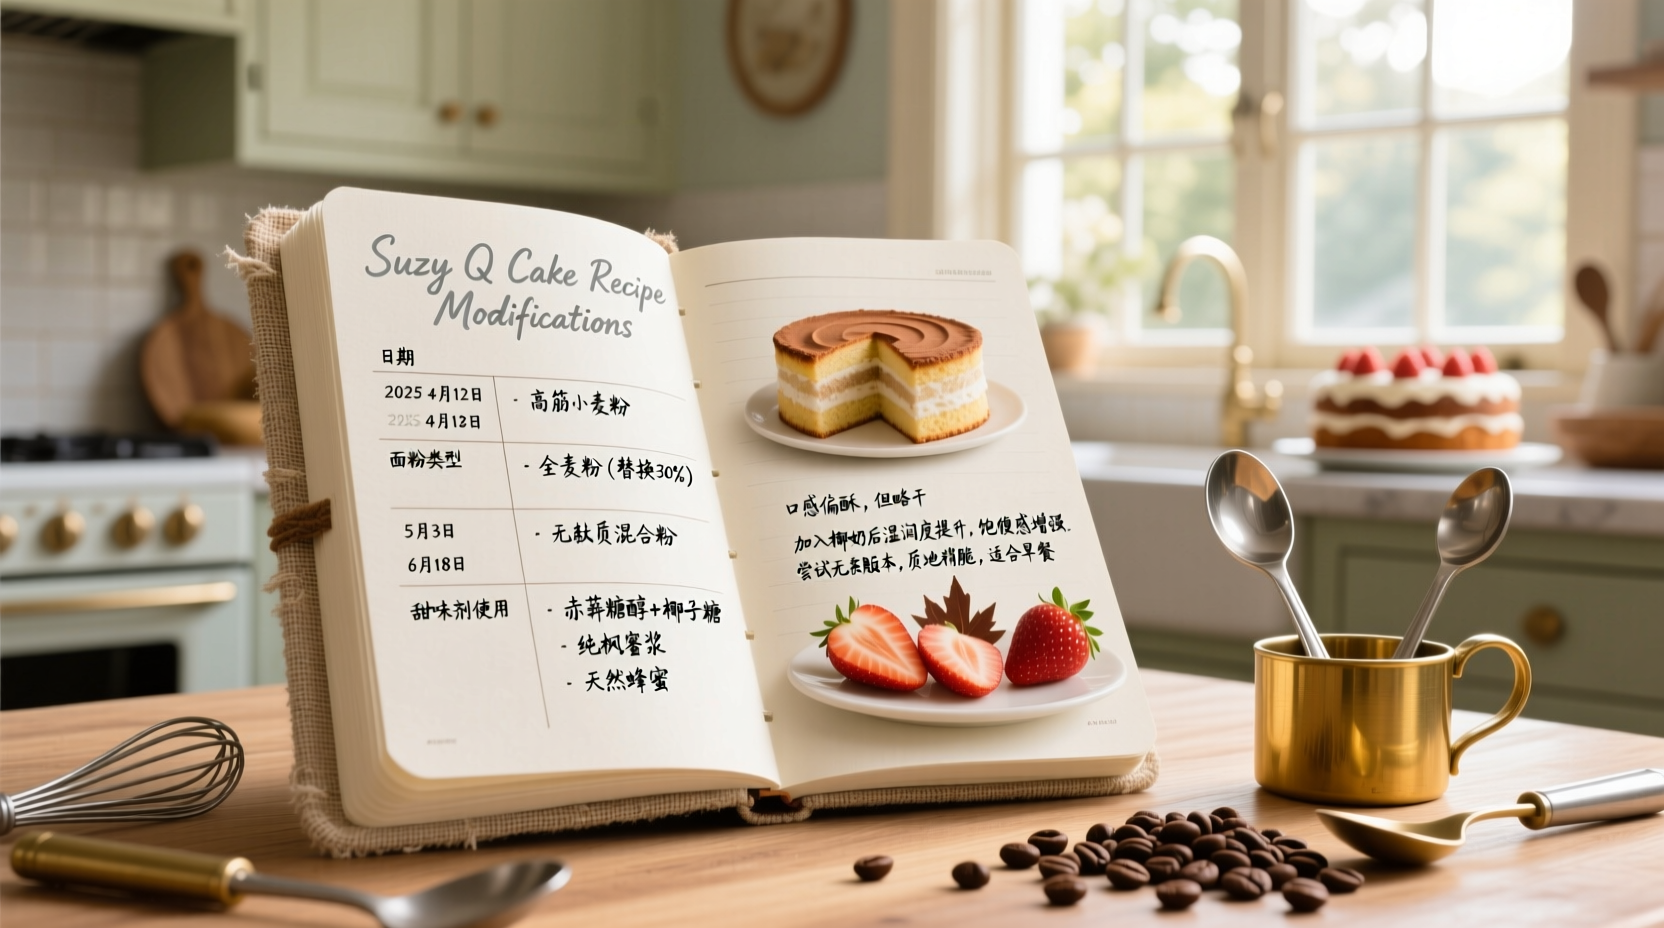 Suzy Q Cake Recipe
Modifications
日期
2025 4月12日
4月13日
- 高筋小麦粉
面粉类型
- 全麦粉(替换30%)
5月3日
6月18日
- 无麸质混合粉
甜味剂使用
- 赤藓糖醇+椰子糖
- 纯枫蜜浆
- 天然蜂蜜
口感偏酥，但略干
加入椰奶后湿润度提升，饱腹感增强.
尝试无蛋版本，质地稍脆，适合早餐